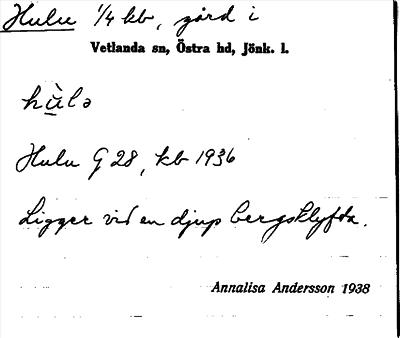 Hulu 1/4 kb, gård i
Vetlanda sn, Östra hd, Jönk. l.
hù̱lə
Hulu G 28, kb 1936
Ligger vid en djup bergsklyfta.
Annalisa Andersson 1938